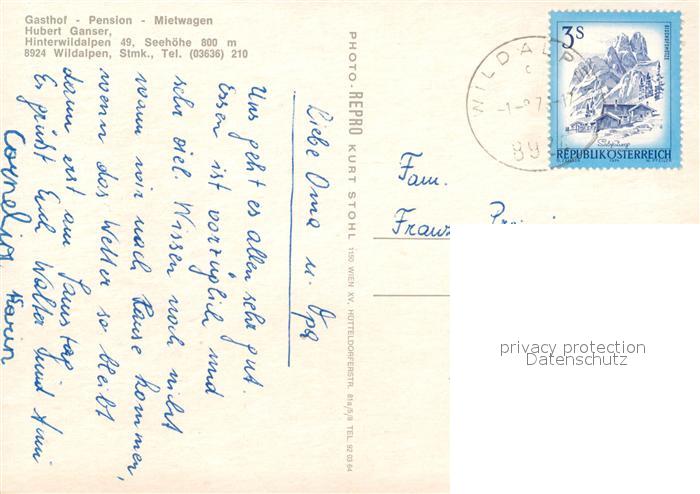 Gasthof - Pension - Mietwagen
Hubert Ganser,
Hinterwildalpen 49, Seehöhe 800 m
8924 Wildalpen, Stmk., Tel. (03636) 210
Liebe Oma u. Opa
Uns geht es allen sehr gut.
Essen ist vorzüglich und
sehr viel. Wissen noch nicht
wann wir nach Hause kommen,
wenn das Wetter so bleibt
dann erst am Samstag
Es grüßt Euch Walter
Cornelia Karin
PHOTO-REPRO KURT STOHL 1150 WIEN XV, HÜTTELDORFERSTR. 81a/5/8 TEL. 92 03 64
WILDALP
3S
REPUBLIK ÖSTERREICH
Fam.
Franz
privacy protection
Datenschutz